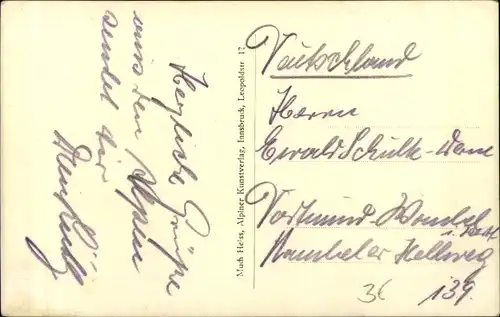 Herzliche Grüße
aus den Alpen
sendet Dir
Much Heiss, Alpiner Kunstverlag, Innsbruck, Leopoldstr. 12
Deutschland
Herrn
Ewald Schulte-
Dortmund-Wambel
i. Westf.
Wambeler Hellweg
139.
3€